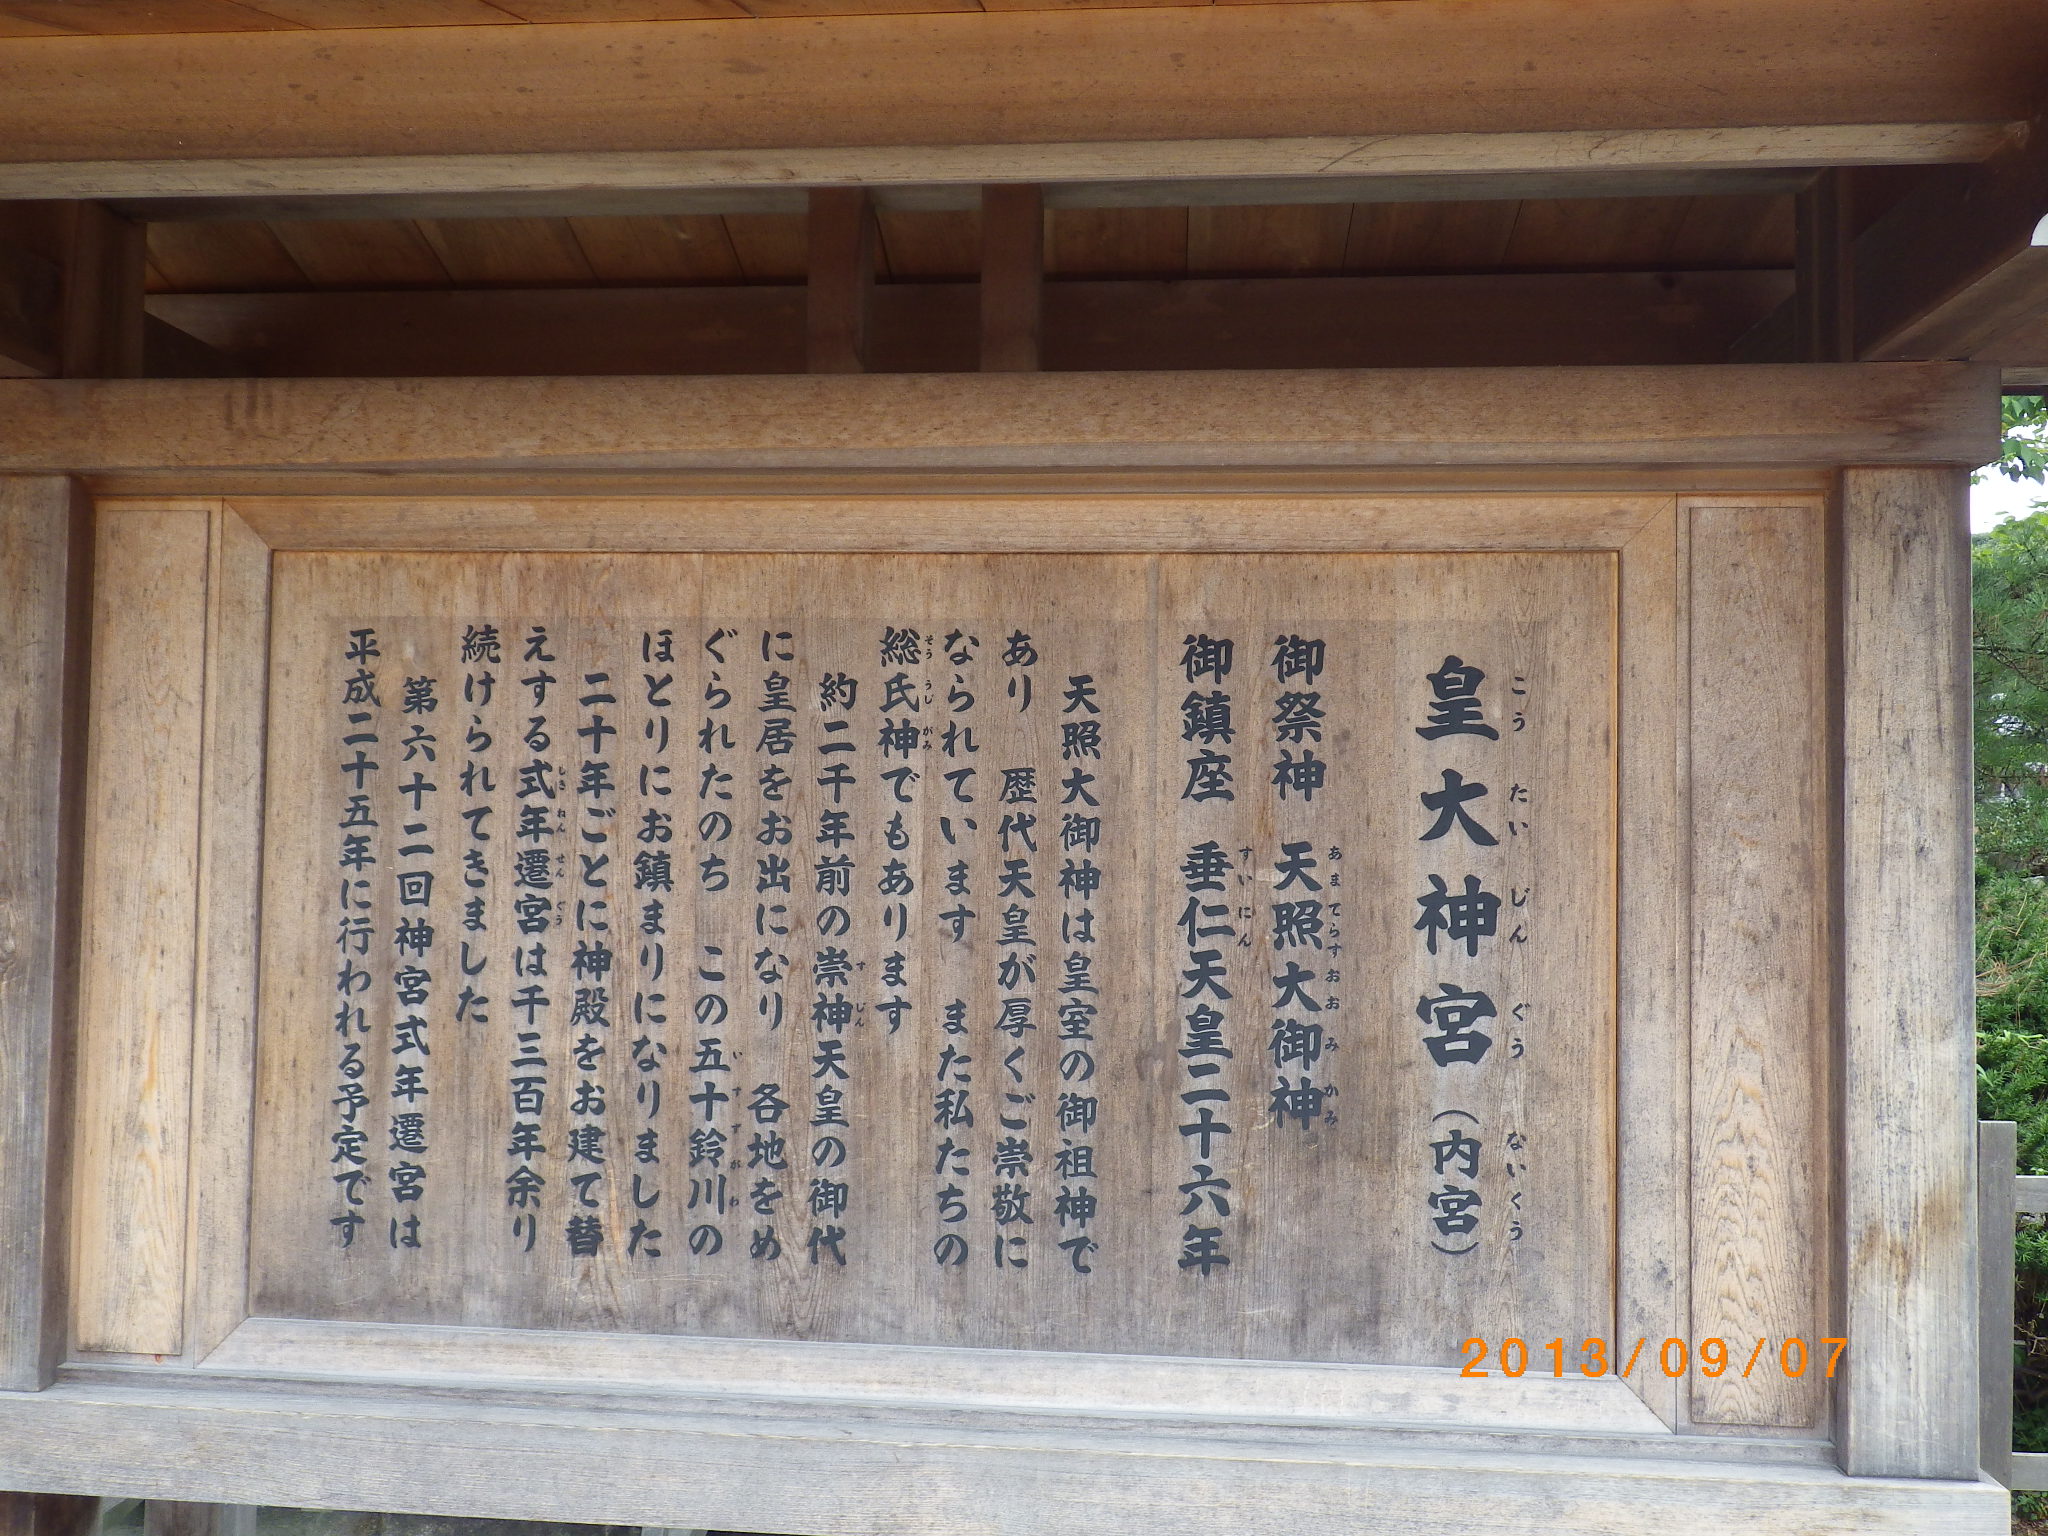 皇大神宮（内宮）
こうたいじんぐうないくう
御祭神 天照大御神
あまてらすおおみかみ
御鎮座 垂仁天皇二十六年
すいにん
天照大御神は皇室の御祖神で
あり 歴代天皇が厚くご崇敬に
なられています また私たちの
総氏神でもあります
そううじがみ
約二千年前の崇神天皇の御代
すじん
に皇居をお出になり 各地をめ
ぐられたのち この五十鈴川の
いすずがわ
ほとりにお鎮まりになりました
二十年ごとに神殿をお建て替
えする式年遷宮は千三百年余り
しきねんせんぐう
続けられてきました
第六十二回神宮式年遷宮は
平成二十五年に行われる予定です
2013/09/07